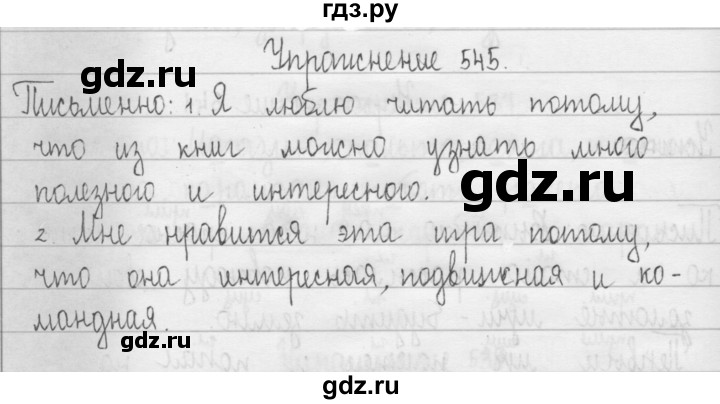 гдз.ру
Упражнение 545.
gdz.ru
gdz.ru
Письменно: 1. Я люблю читать потому,
что из книг можно узнать много
gdz.ru
полезного и интересного.
2. Мне нравится эта игра потому,
что она интересная, подвижная и ко-
мандная.
gdz.ru
gdz.ru
gdz.ru